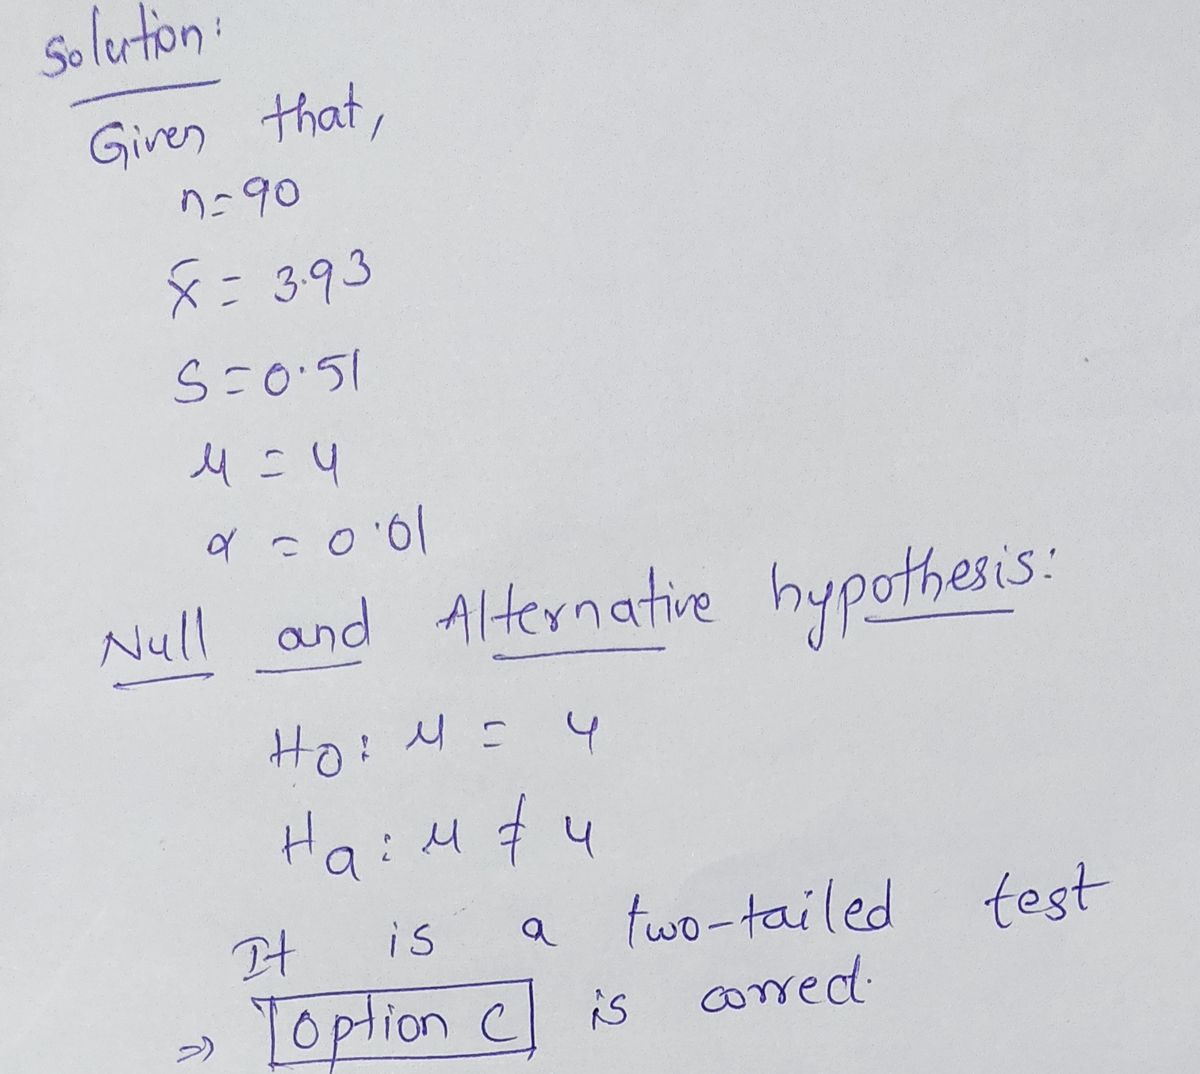 Solution:
Given that,
n=90
x̄ = 3.93
S=0.51
μ = 4
α = 0.01
Null and Alternative hypothesis:
H0: μ = 4
Ha: μ ≠ 4
It is a two-tailed test
⇒ Option C is correct.